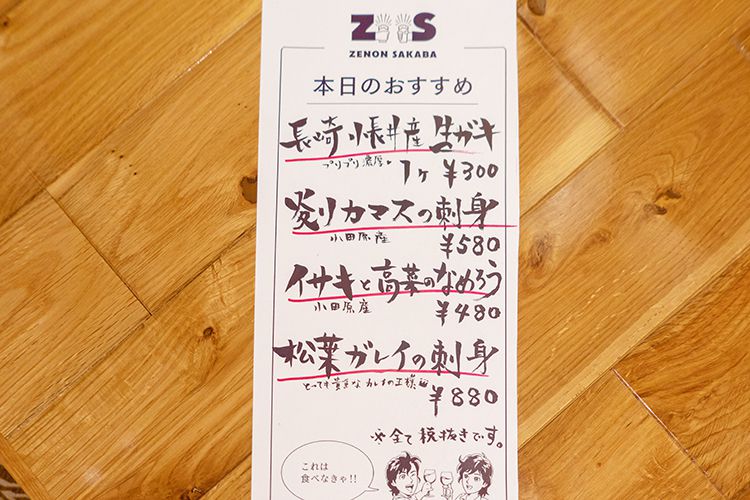 ZS
ZENON SAKABA
本日のおすすめ
長崎小長井産 生ガキ
プリプリ濃厚。
1ヶ ¥300
炙りカマスの刺身
小田原産
¥580
イサキと高菜のなめろう
小田原産
¥480
松葉ガレイの刺身
とっても貴重な カレイの王様
¥880
※全て税抜きです。
これは
食べなきゃ!!